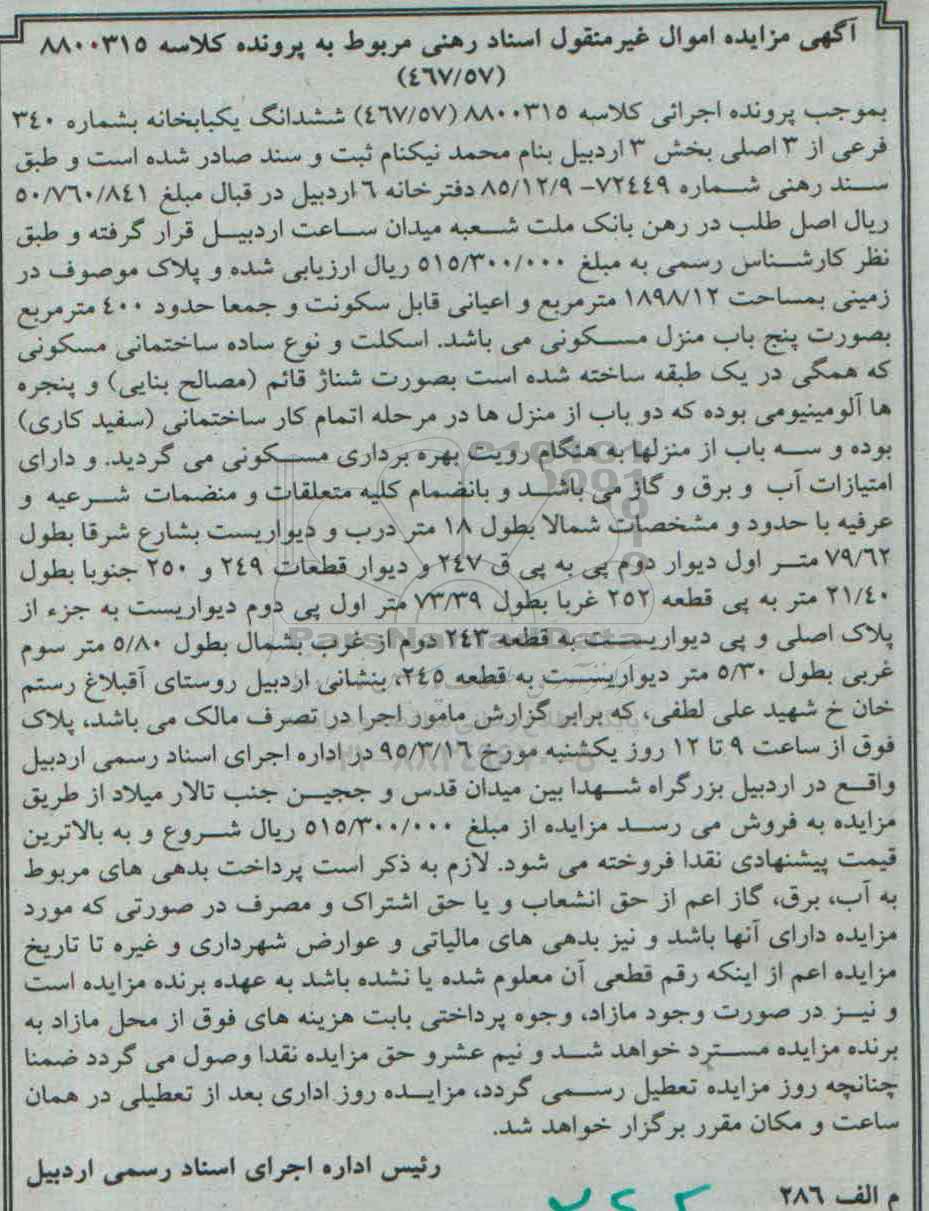 آگهی مزایده اموال غیرمنقول اسناد رهنی مربوط به پرونده کلاسه ۸۸۰۰۳۱۵
(٤٦٧/٥٧)
بموجب پرونده اجرائی کلاسه ۸۸۰۰۳۱۵ (٤٦٧/٥٧) ششدانگ یکبابخانه بشماره ۳٤۰
فرعی از ۳ اصلی بخش ۳ اردبیل بنام محمد نیکنام ثبت و سند صادر شده است و طبق
سند رهنی شماره ۷۲٤٤۹- ۸٥/۱۲/۹ دفترخانه ٦ اردبیل در قبال مبلغ ٥۰/۷٦۰/۸٤۱
ریال اصل طلب در رهن بانک ملت شعبه میدان ساعت اردبیل قرار گرفته و طبق
نظر کارشناس رسمی به مبلغ ٥۱٥/۳۰۰/۰۰۰ ریال ارزیابی شده و پلاک موصوف در
زمینی بمساحت ۱۸۹۸/۱۲ مترمربع و اعیانی قابل سکونت و جمعا حدود ٤۰۰ مترمربع
بصورت پنج باب منزل مسکونی می باشد. اسکلت و نوع ساده ساختمانی مسکونی
که همگی در یک طبقه ساخته شده است بصورت شناژ قائم (مصالح بنایی) و پنجره
ها آلومینیومی بوده که دو باب از منزل ها در مرحله اتمام کار ساختمانی (سفید کاری)
بوده و سه باب از منزلها به هنگام رویت بهره برداری مسکونی می گردید. و دارای
امتیازات آب و برق و گاز می باشد و بانضمام کلیه متعلقات و منضمات شرعیه و
عرفیه با حدود و مشخصات شمالا بطول ۱۸ متر درب و دیواریست بشارع شرقا بطول
۷۹/٦۲ متر اول دیوار دوم پی به پی ق ۲٤۷ و دیوار قطعات ۲٤۹ و ۲٥۰ جنوبا بطول
۲۱/٤۰ متر به پی قطعه ۲٥۲ غربا بطول ۷۳/۳۹ متر اول پی دوم دیواریست به جزء از
پلاک اصلی و پی دیواریست به قطعه ۲٤۳ دوم از غرب بشمال بطول ٥/۸۰ متر سوم
غربی بطول ٥/۳۰ متر دیواریست به قطعه ۲٤٥، بنشانی اردبیل روستای آقبلاغ رستم
خان خ شهید علی لطفی، که برابر گزارش مامور اجرا در تصرف مالک می باشد، پلاک
فوق از ساعت ۹ تا ۱۲ روز یکشنبه مورخ ۹٥/۳/۱٦ در اداره اجرای اسناد رسمی اردبیل
واقع در اردبیل بزرگراه شهدا بین میدان قدس و ججین جنب تالار میلاد از طریق
مزایده به فروش می رسد مزایده از مبلغ ٥۱٥/۳۰۰/۰۰۰ ریال شروع و به بالاترین
قیمت پیشنهادی نقدا فروخته می شود. لازم به ذکر است پرداخت بدهی های مربوط
به آب، برق، گاز اعم از حق انشعاب و یا حق اشتراک و مصرف در صورتی که مورد
مزایده دارای آنها باشد و نیز بدهی های مالیاتی و عوارض شهرداری و غیره تا تاریخ
مزایده اعم از اینکه رقم قطعی آن معلوم شده یا نشده باشد به عهده برنده مزایده است
و نیز در صورت وجود مازاد، وجوه پرداختی بابت هزینه های فوق از محل مازاد به
برنده مزایده مسترد خواهد شد و نیم عشرو حق مزایده نقدا وصول می گردد ضمنا
چنانچه روز مزایده تعطیل رسمی گردد، مزایده روز اداری بعد از تعطیلی در همان
ساعت و مکان مقرر برگزار خواهد شد.
رئیس اداره اجرای اسناد رسمی اردبیل
م الف ۲۸٦
ParsNamadData